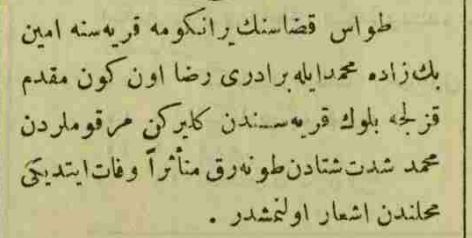 طواس قضاسنك يرانكومه قريه سنه امين
بك زاده محمدايله برادرى رضا اون كون مقدم
قزلجه بلوك قريه سندن كليركن مرقوملردن
محمد شدت شتادن طونه رق متأثراً وفات ايتديكى
محلندن اشعار اولنمشدر .